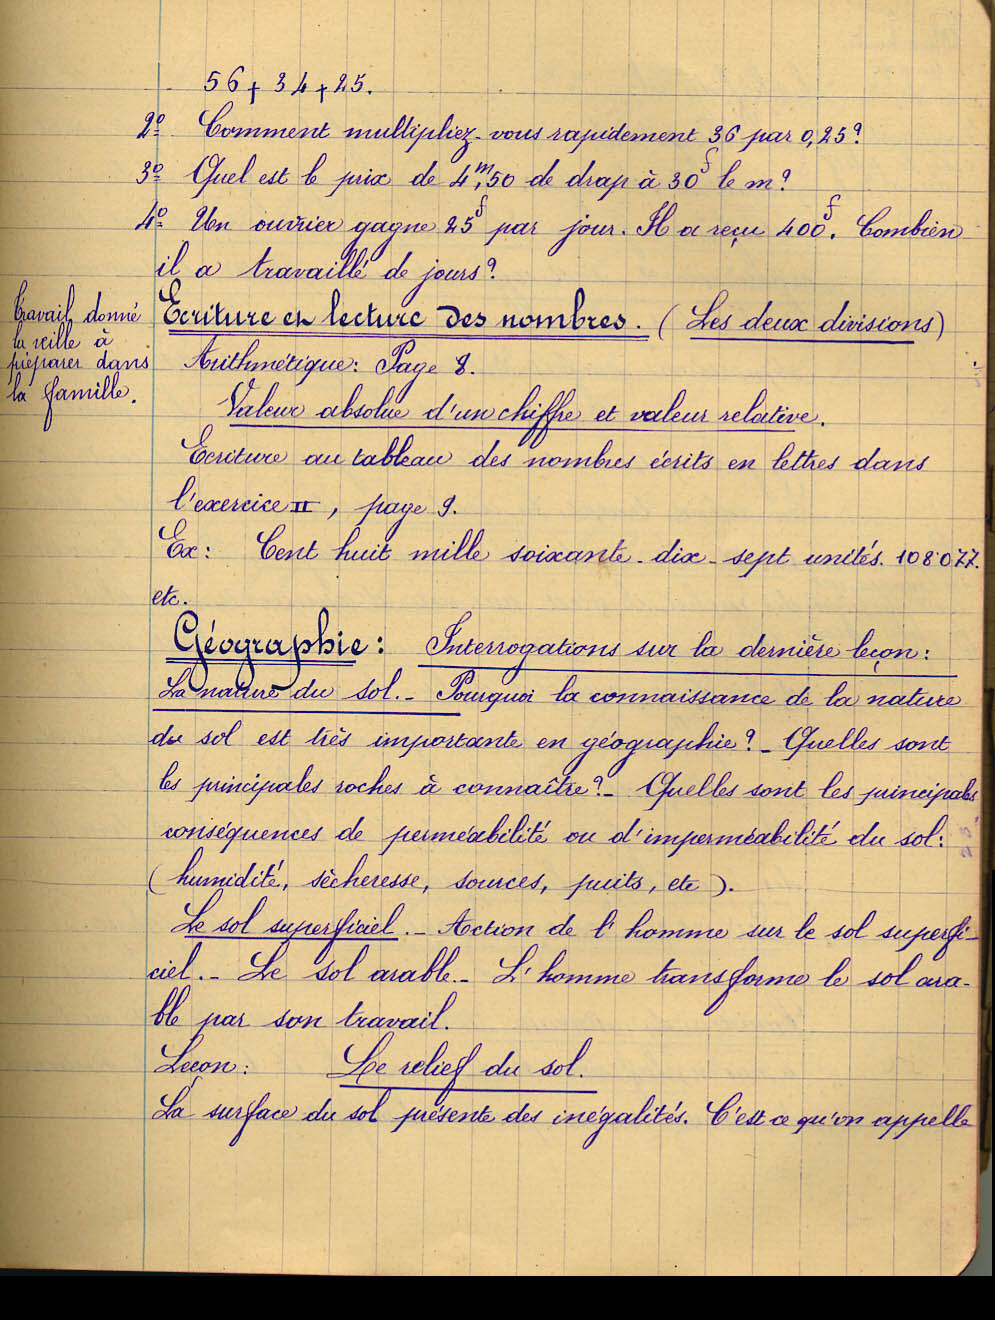 56 + 34 + 25.
2º Comment multipliez-vous rapidement 36 par 0,25?
3º Quel est le prix de 4m,50 de drap à 30f le m?
4º Un ouvrier gagne 25f par jour. Il a reçu 400f. Combien
il a travaillé de jours?
Travail donné
la veille à
préparer dans
la famille.
Ecriture et lecture des nombres. (Les deux divisions)
Arithmétique: Page 8.
Valeur absolue d'un chiffre et valeur relative.
Ecriture au tableau des nombres écrits en lettres dans
l'exercice II, page 9.
Ex: Cent huit mille soixante-dix-sept unités. 108.077.
etc.
Géographie: Interrogations sur la dernière leçon:
La nature du sol.- Pourquoi la connaissance de la nature
du sol est très importante en géographie?- Quelles sont
les principales roches à connaître?- Quelles sont les principales
conséquences de perméabilité ou d'imperméabilité du sol:
(humidité, sècheresse, sources, puits, etc).
Le sol superficiel.- Action de l'homme sur le sol superfi-
ciel.- Le sol arable.- L'homme transforme le sol ara-
ble par son travail.
Leçon: Le relief du sol.
La surface du sol présente des inégalités. C'est ce qu'on appelle